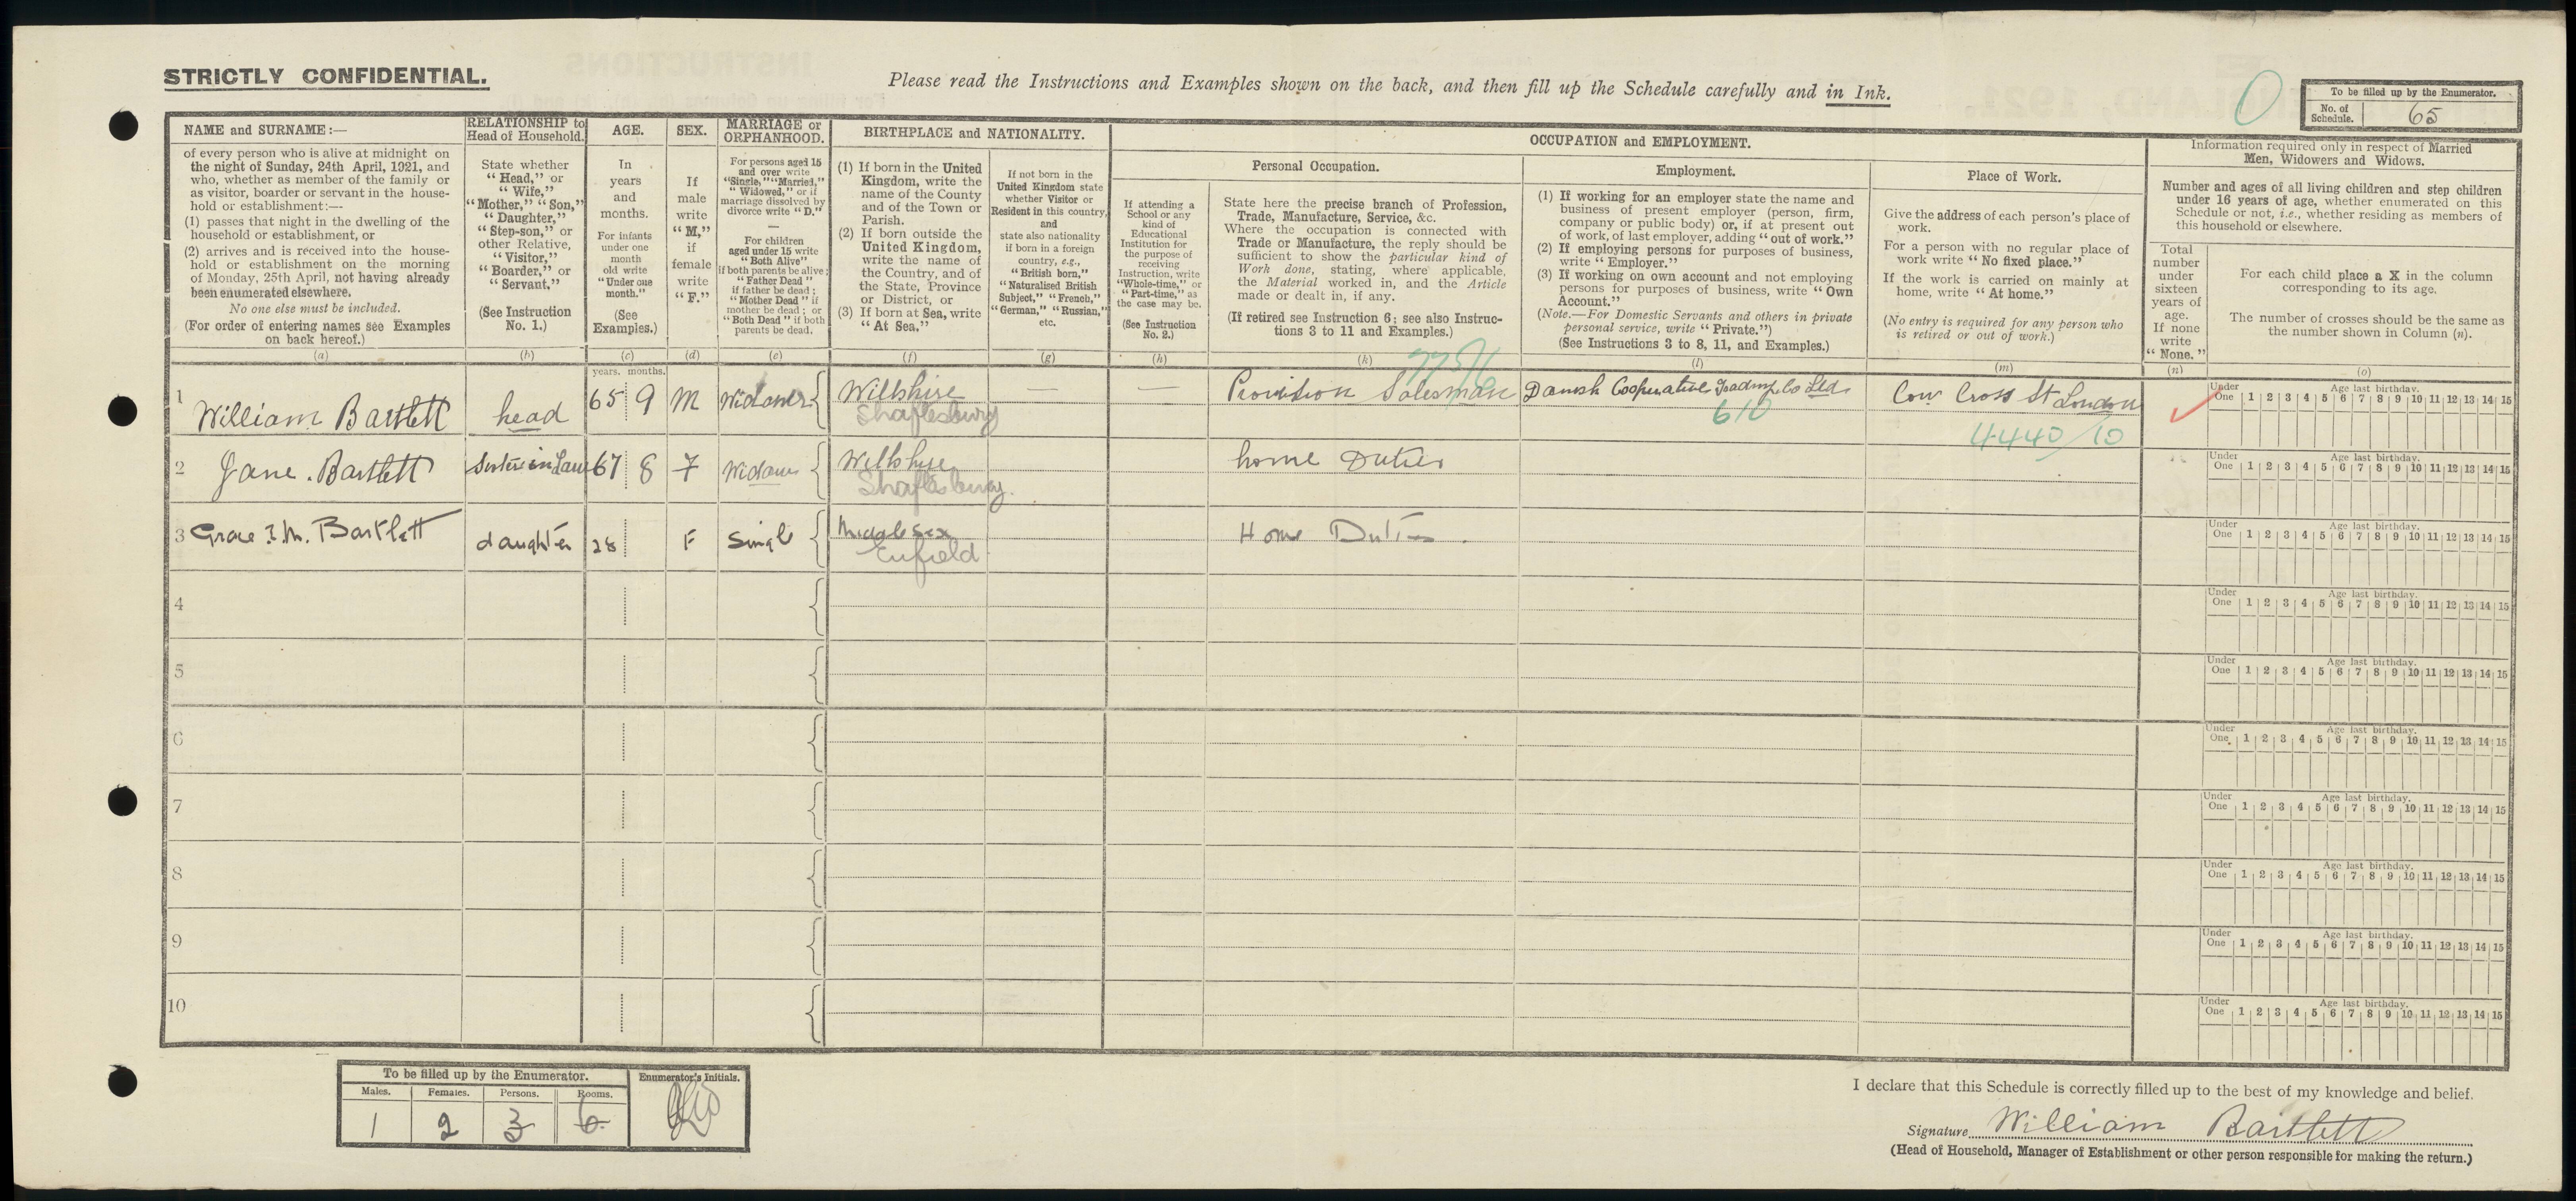 STRICTLY CONFIDENTIAL.
Please read the Instructions and Examples shown on the back, and then fill up the Schedule carefully and in Ink.
To be filled up by the Enumerator.
No. of Schedule. 65
NAME and SURNAME:—
of every person who is alive at midnight on
the night of Sunday, 24th April, 1921, and
who, whether as member of the family or
as visitor, boarder or servant in the house-
hold or establishment:—
(1) passes that night in the dwelling of the
household or establishment, or
(2) arrives and is received into the house-
hold or establishment on the morning
of Monday, 25th April, not having already
been enumerated elsewhere.
No one else must be included.
(For order of entering names see Examples
on back hereof.)
(a)
RELATIONSHIP to
Head of Household.
State whether
"Head," or
"Wife,"
"Mother," "Son,"
"Daughter,"
"Step-son," or
other Relative,
"Visitor,"
"Boarder," or
"Servant."
(See Instruction
No. 1.)
(b)
AGE.
In
years
and
months.
For infants
under one
month
old write
"Under one
month."
(See
Examples.)
(c)
SEX.
If
male
write
"M,"
if
female
write
"F."
(d)
MARRIAGE or
ORPHANHOOD.
For persons aged 15
and over write
"Single," "Married,"
"Widowed," or if
marriage dissolved by
divorce write "D."
—
For children
aged under 15 write
"Both Alive"
if both parents be alive;
"Father Dead"
if father be dead;
"Mother Dead" if
mother be dead; or
"Both Dead" if both
parents be dead.
(e)
BIRTHPLACE and NATIONALITY.
(1) If born in the United
Kingdom, write the
name of the County
and of the Town or
Parish.
(2) If born outside the
United Kingdom,
write the name of
the Country, and of
the State, Province
or District, or
(3) If born at Sea, write
"At Sea."
(f)
If not born in the
United Kingdom state
whether Visitor or
Resident in this country,
and
state also nationality
if born in a foreign
country, e.g.,
"British born,"
"Naturalised British
Subject," "French,"
"German," "Russian,"
etc.
(g)
OCCUPATION and EMPLOYMENT.
If attending a
School or any
kind of
Educational
Institution for
the purpose of
receiving
Instruction, write
"Whole-time," or
"Part-time," as
the case may be.
(See Instruction
No. 2.)
(h)
Personal Occupation.
State here the precise branch of Profession,
Trade, Manufacture, Service, &c.
Where the occupation is connected with
Trade or Manufacture, the reply should be
sufficient to show the particular kind of
Work done, stating, where applicable,
the Material worked in, and the Article
made or dealt in, if any.
(If retired see Instruction 6; see also Instruc-
tions 3 to 11 and Examples.)
(k)
Employment.
(1) If working for an employer state the name and
business of present employer (person, firm,
company or public body) or, if at present out
of work, of last employer, adding "out of work."
(2) If employing persons for purposes of business,
write "Employer."
(3) If working on own account and not employing
persons for purposes of business, write "Own
Account."
(Note.—For Domestic Servants and others in private
personal service, write "Private.")
(See Instructions 3 to 8, 11, and Examples.)
(l)
Place of Work.
Give the address of each person's place of
work.
For a person with no regular place of
work write "No fixed place."
If the work is carried on mainly at
home, write "At home."
(No entry is required for any person who
is retired or out of work.)
(m)
Information required only in respect of Married
Men, Widowers and Widows.
Number and ages of all living children and step children
under 16 years of age, whether enumerated on this
Schedule or not, i.e., whether residing as members of
this household or elsewhere.
Total
number
under
sixteen
years of
age.
If none
write
"None."
(n)
For each child place a X in the column
corresponding to its age.
The number of crosses should be the same as
the number shown in Column (n).
(o)
years. months.
1 William Bartlett head 65 9 M Widower Wiltshire Shaftesbury — — Provision Salesman Danish Cooperative Trading Co Ltd. Cow Cross St London
610
4440/10
Under One 1 2 3 4 5 6 7 8 9 10 11 12 13 14 15
Age last birthday.
2 Jane. Bartlett Sister in Law 67 8 F Widow Wiltshire Shaftesbury. home Duties
Under One 1 2 3 4 5 6 7 8 9 10 11 12 13 14 15
Age last birthday.
3 Grace M. Bartlett daughter 28 F Single Middlesex Enfield Home Duties.
Under One 1 2 3 4 5 6 7 8 9 10 11 12 13 14 15
Age last birthday.
4
Under One 1 2 3 4 5 6 7 8 9 10 11 12 13 14 15
Age last birthday.
5
Under One 1 2 3 4 5 6 7 8 9 10 11 12 13 14 15
Age last birthday.
6
Under One 1 2 3 4 5 6 7 8 9 10 11 12 13 14 15
Age last birthday.
7
Under One 1 2 3 4 5 6 7 8 9 10 11 12 13 14 15
Age last birthday.
8
Under One 1 2 3 4 5 6 7 8 9 10 11 12 13 14 15
Age last birthday.
9
Under One 1 2 3 4 5 6 7 8 9 10 11 12 13 14 15
Age last birthday.
10
Under One 1 2 3 4 5 6 7 8 9 10 11 12 13 14 15
Age last birthday.
To be filled up by the Enumerator.
Males. Females. Persons. Rooms.
1 2 3 6
Enumerator's Initials.
I declare that this Schedule is correctly filled up to the best of my knowledge and belief.
Signature William Bartlett
(Head of Household, Manager of Establishment or other person responsible for making the return.)